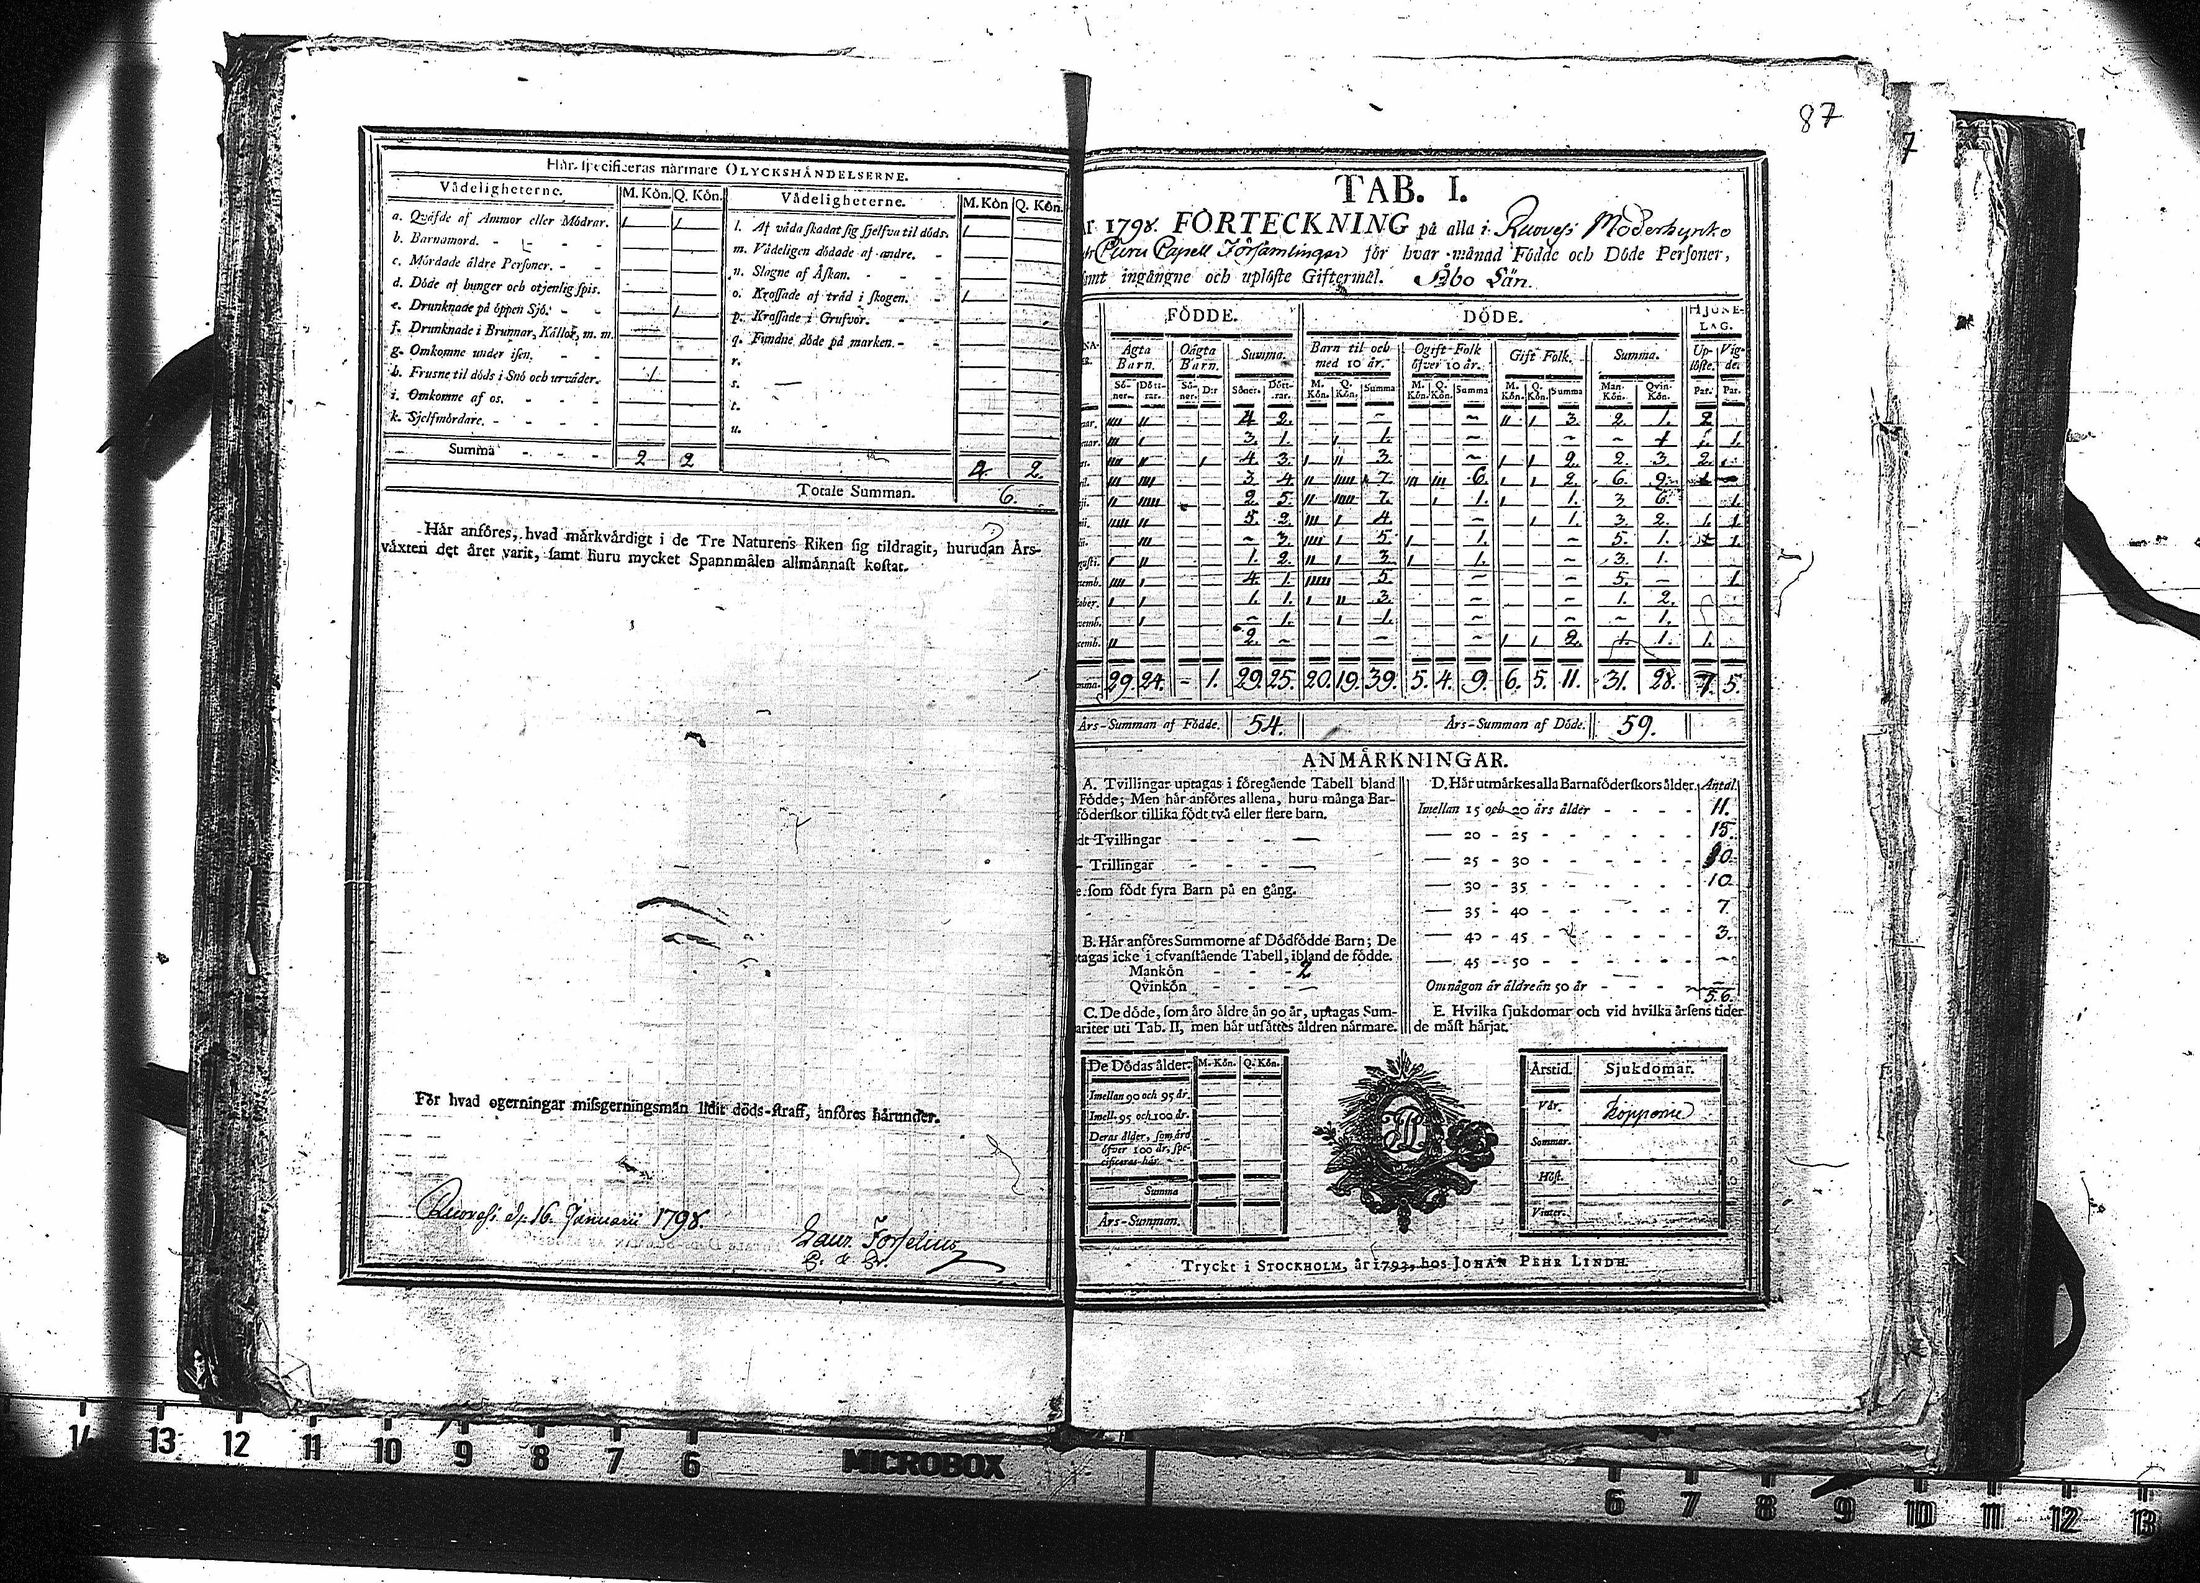 87
7
Hår specificeras nårmare OLYCKSHÅNDELSERNE.
Vådeligheterne. M. Kön. Q. Kön. Vådeligheterne. M. Kön Q. Kön.
a. Qväfde af Ammor eller Mödrar. 1 1 l. Af våda skadat sig sjelfva til döds. 1
b. Barnamord. m. Vådeligen dödade af andre.
c. Mördade äldre Personer. n. Slagne af Åskan.
d. Döde af hunger och otjenlig spis. o. Krossade af träd i skogen. 1
e. Drunknade på öppen Sjö. 1 p. Krossade i Grufvor.
f. Drunknade i Brunnar, Källor, m. m. q. Fundne döde på marken.
g. Omkomne under isen. r.
h. Frusne til döds i Snö och urväder. 1 s.
i. Omkomne af os. t.
k. Sjelfmördare. u.
Summa 2 2 2. 2.
Totale Summan. 6.
Hår anföres, hvad märkvärdigt i de Tre Naturens Riken sig tildragit, hurudan Års-
växten det året varit, samt huru mycket Spannmålen allmännast kostat.
För hvad ogerningar missgerningsmän lidit döds-straff, anföres härunder.
Ruovesi d. 16. Januarii 1798.
Laur. Forselius
TAB. I.
År 1798. FÖRTECKNING på alla i Ruovesi Moderkyrko
Capell Församlingar för hvar månad Födde och Döde Personer,
samt ingångne och uplöste Giftermål. Åbo Län.
FÖDDE. DÖDE. HJONE-
LAG.
Ägta Barn. Oägta Barn. Summa. Barn til och med 10 år. Ogift Folk öfver 10 år. Gift Folk. Summa. Up-löste. Vig-de.
Sö-ner. Dött-rar. Sö-ner. D:r Söner. Dött-rar. M. Kön. Q. Kön. Summa M. Kön. Q. Kön. Summa M. Kön. Q. Kön. Summa Man-Kön. Qvin-Kön. Par. Par.
4. 2. 3. 2. 1. 2
3. 1. 1. 1. 1.
4. 3. 3. 2. 2. 3. 2.
3. 4. 7. 6. 2. 6. 9.
2. 5. 7. 1. 1. 3. 6. 1.
5. 2. 4. 1. 3. 2. 1. 1.
3. 5. 1. 5. 1. 1.
1. 2. 3. 1. 3. 1.
4. 1. 5. 5. 1
1. 1. 3. 1. 2.
1. 1. 1.
2. 2. 1. 1. 1.
29. 24. - 1. 29. 25. 20. 19. 39. 5. 4. 9. 6. 5. 11. 31. 28. 7. 5.
Års-Summan af Födde. 54. Års-Summan af Döde. 59.
ANMÄRKNINGAR.
A. Tvillingar uptagas i föregående Tabell bland
Födde; Men här anföres allena, huru många Bar-
föderskor tillika födt två eller flere barn.
Tvillingar
Trillingar
som födt fyra Barn på en gång.
B. Här anföres Summorne af Dödfödde Barn; De
tagas icke i ofvanstående Tabell, ibland de födde.
Mankön 2
Qvinkön
C. De döde, som äro äldre än 90 år, uptagas Sum-
mariter uti Tab. II, men här utsättes åldren närmare.
De Dödas ålder. M. Kön. Q. Kön.
Imellan 90 och 95 år.
Imell. 95 och 100 år.
Deras ålder, som äro
öfver 100 år, spe-
cificeras här
Summa
Års-Summan.
D. Här utmärkes alla Barnaföderskors ålder. Antal.
Imellan 15 och 20 års ålder 11.
20 - 25 15.
25 - 30 10
30 - 35 10
35 - 40 7.
40 - 45 3.
45 - 50
Om någon är äldre än 50 år
56.
E. Hvilka sjukdomar och vid hvilka årsens tider
de mäst härjat.
Årstid. Sjukdomar.
Vår. Kopporne
Sommar.
Höst.
Vinter.
Tryckt i STOCKHOLM, år 1793, hos JOHAN PEHR LINDH.
14 13 12 11 10 9 8 7 6 MICROBOX 6 7 8 9 10 11 12 13